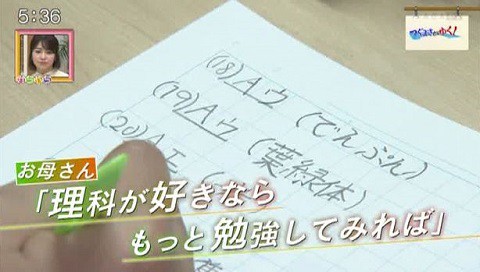 5:36
(18) Aウ (でんぷん)
(19) Aウ (葉緑体)
(20) A
お母さん
「理科が好きなら
もっと勉強してみれば」